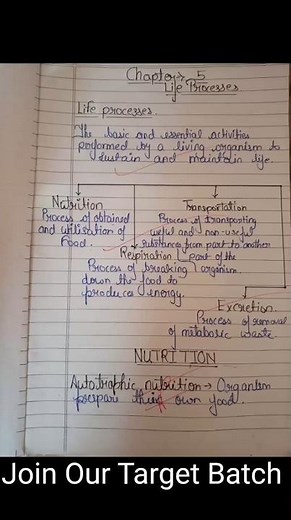 Chapter 5
Life Processes
Life processes.
The basic and essential activities
performed by a living organism to
sustain and maintain life.
Nutrition
Process of obtained
and utilisation of
food.
Transportation
Process of transporting
useful and non-useful
substance from part to another
part of the
organism.
Respiration
Process of breaking
down the food to
produce energy.
Excretion
Process of removal
of metabolic waste
NUTRITION
Autotrophic nutrition → Organism
prepare their own food.
Join Our Target Batch